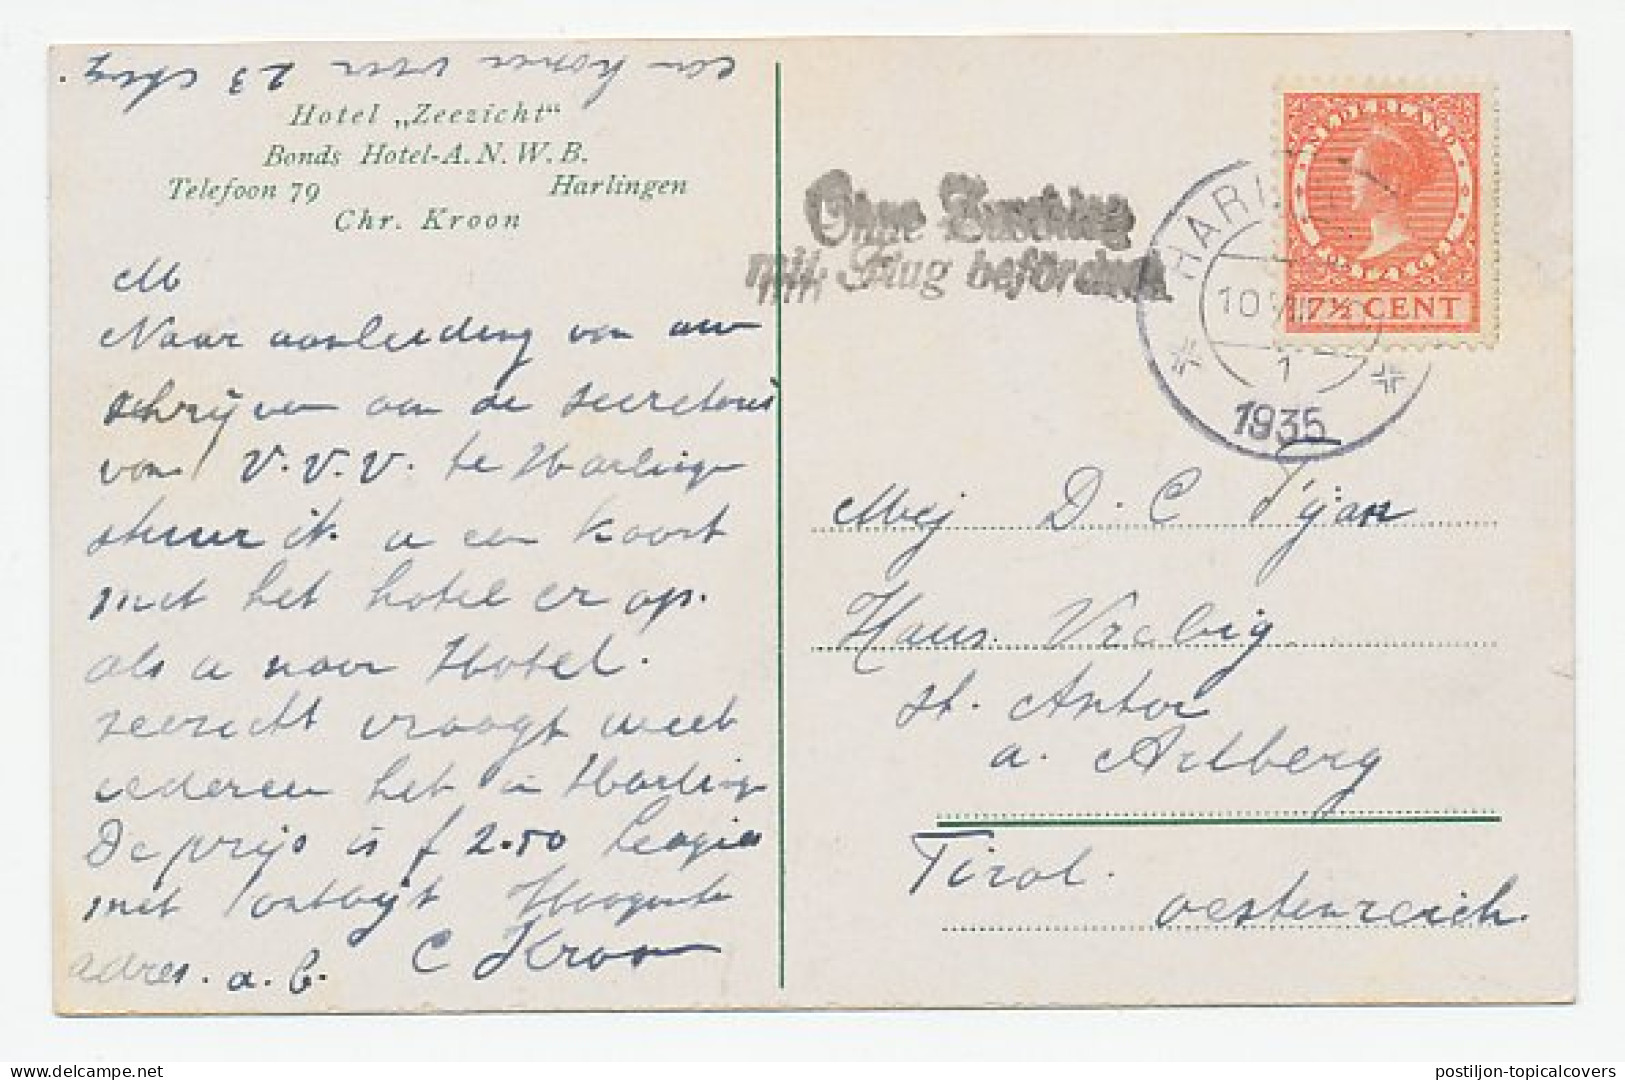 Hotel „Zeezicht“
Bonds Hotel-A.N.W.B.
Telefoon 79 Harlingen
Chr. Kroon
M
Naar aanleiding van uw
schrijven aan de secretaris
van V.V.V. te Harlingen
stuur ik u een kaart
met het hotel er op.
als u naar Hotel.
zeezicht vraagt weet
iedereen het in Harlingen
De prijs is f 2.50 Logies
met ontbijt Hoogachtend
adres. a.b. C Kroon
voor 23
Ohne Zuschlag
mit Flug befördert
HARL
10 VIII
1
1935
NEDERLAND
7½ CENT
Mej D. C
Haus
St. Anton
a. Arlberg
Tirol.
Oestenreich.
postiljon-topicalcovers